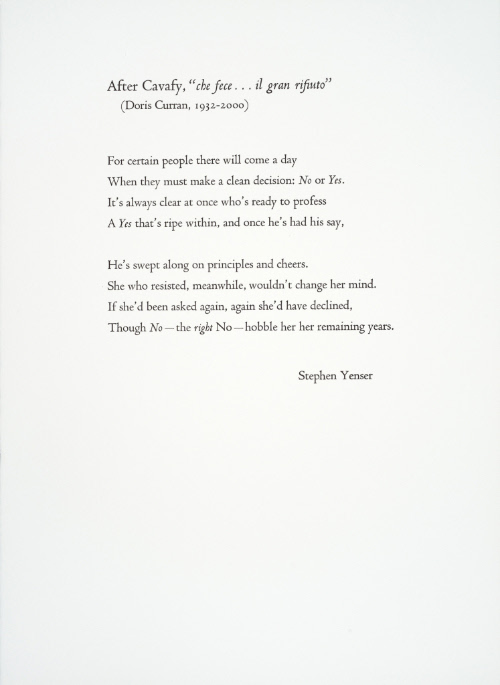 After Cavafy, “che fece . . . il gran rifiuto”
(Doris Curran, 1932-2000)
For certain people there will come a day
When they must make a clean decision: No or Yes.
It’s always clear at once who’s ready to profess
A Yes that’s ripe within, and once he’s had his say,
He’s swept along on principles and cheers.
She who resisted, meanwhile, wouldn’t change her mind.
If she’d been asked again, again she’d have declined,
Though No—the right No—hobble her her remaining years.
Stephen Yenser